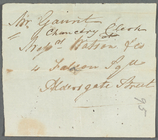 Mr. Gaunt
Chancery Clerk
Messrs Watson & Co
4 Falcon Sqre
Aldersgate Street